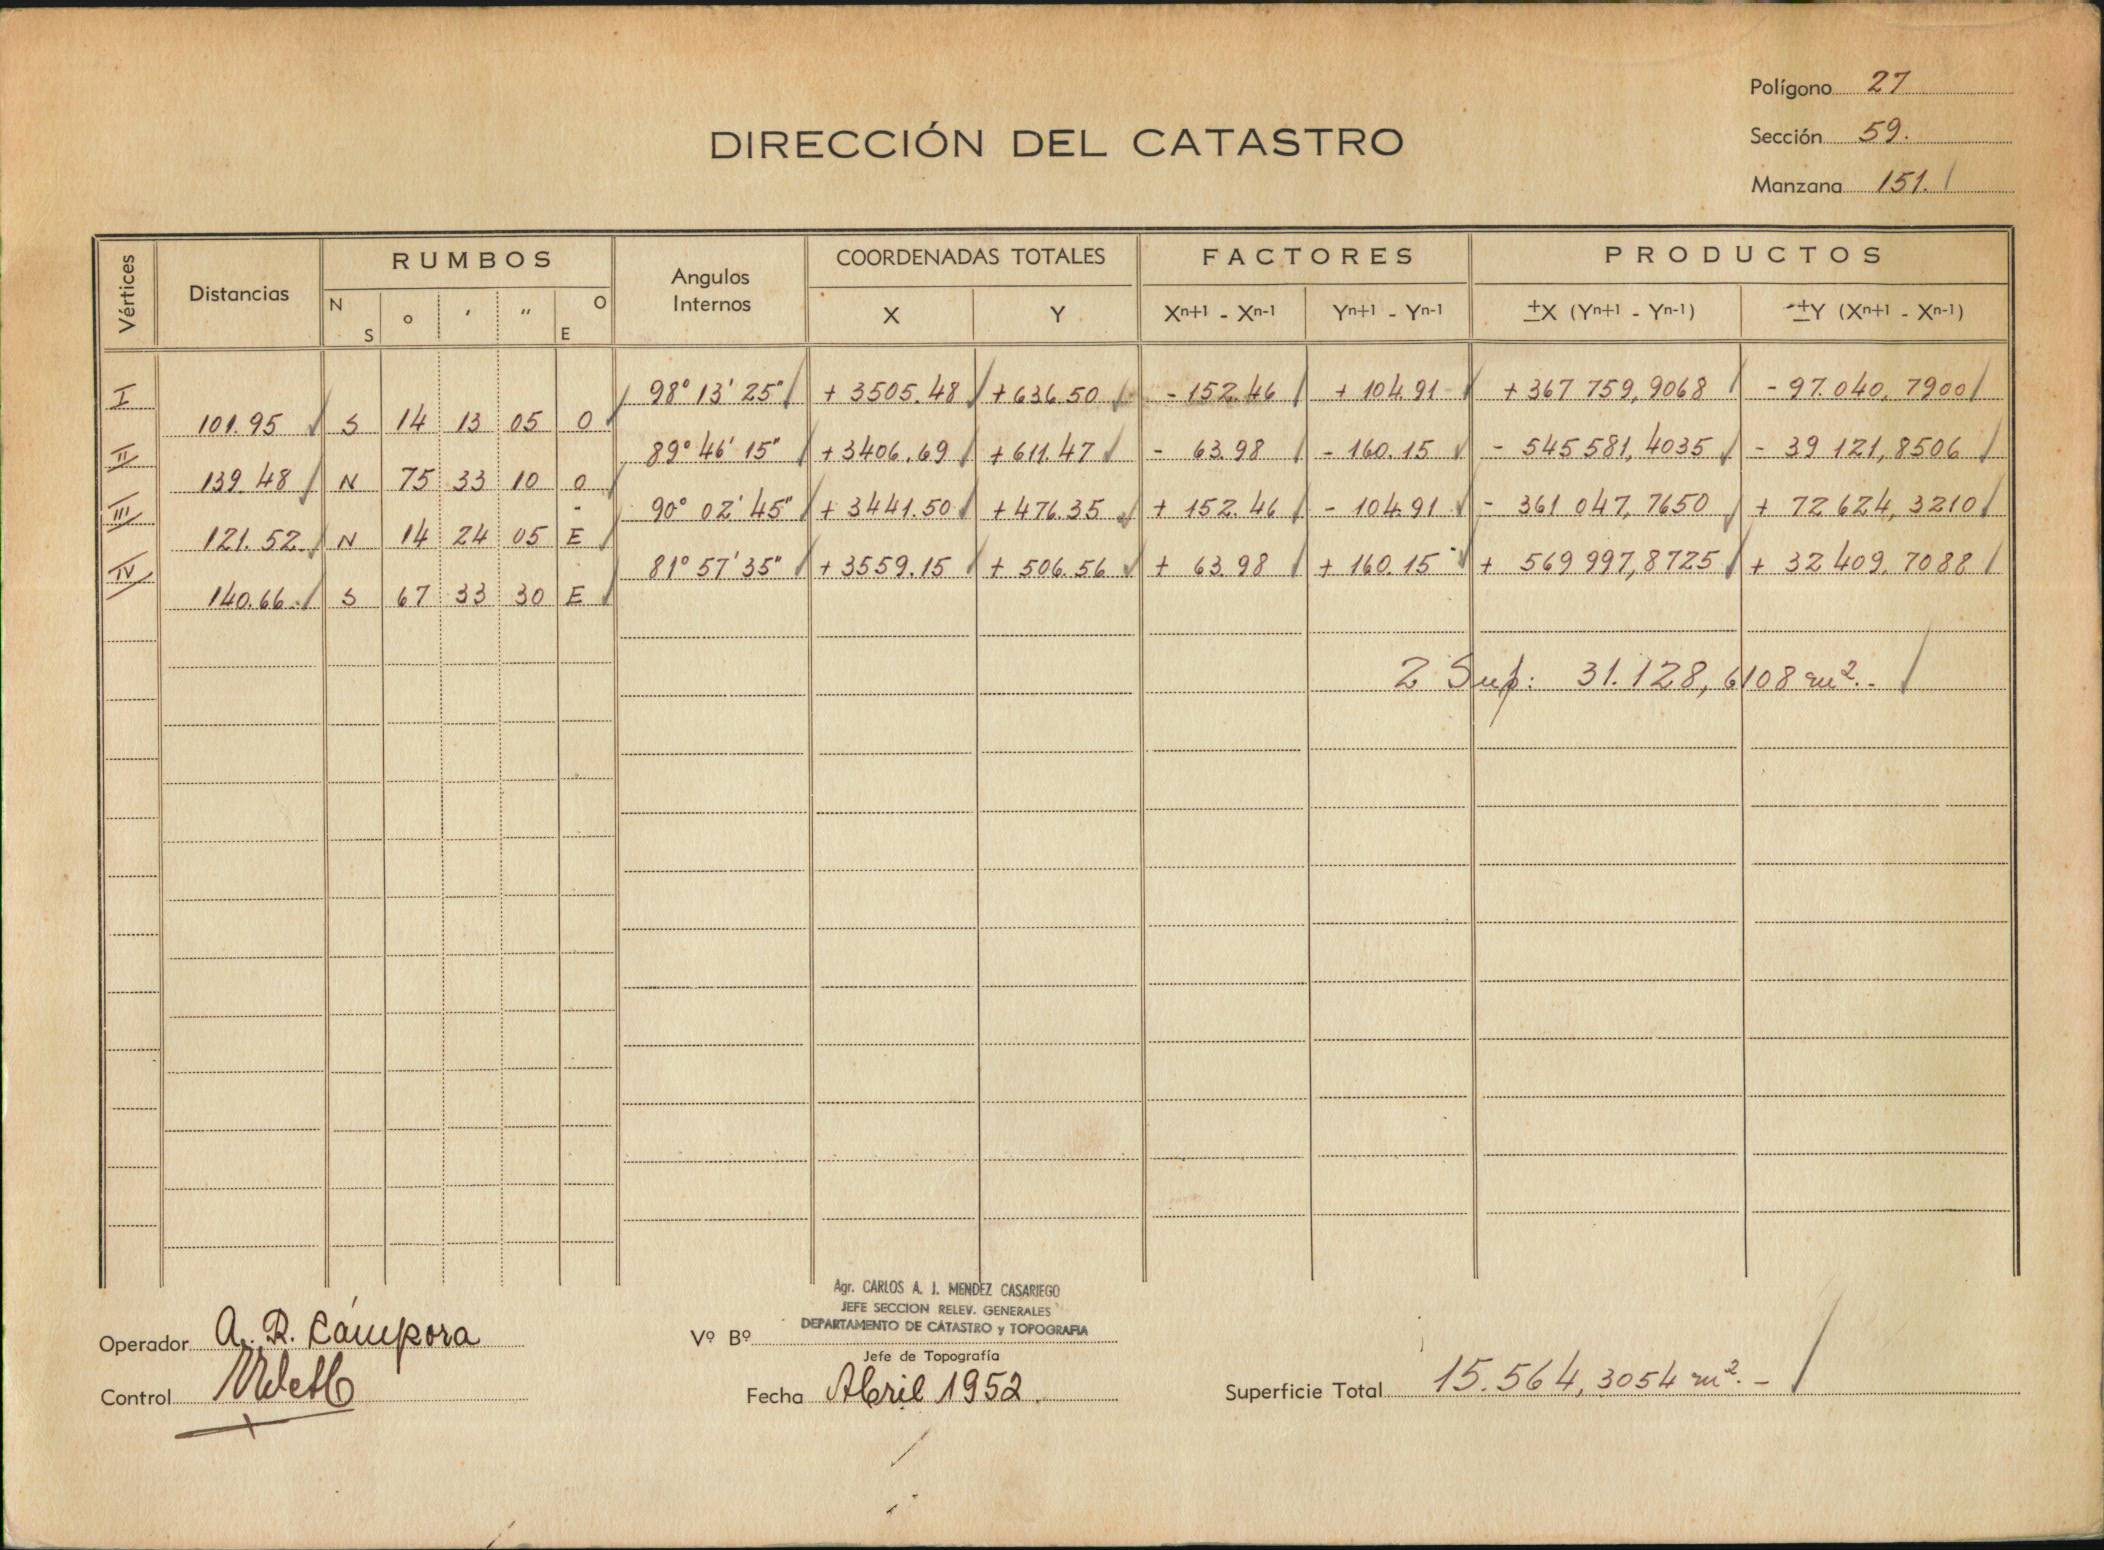 Polígono 27
DIRECCIÓN DEL CATASTRO
Sección 59.
Manzana 151.
Vértices Distancias RUMBOS Angulos Internos COORDENADAS TOTALES FACTORES PRODUCTOS
N S o ' " O E X Y Xn+1 - Xn-1 Yn+1 - Yn-1 ±X (Yn+1 - Yn-1) -±Y (Xn+1 - Xn-1)
I 98° 13' 25" + 3505.48 + 636.50 - 152.46 + 104.91 + 367 759,9068 - 97.040,7900
101.95 S 14 13 05 O
II 89° 46' 15" + 3406.69 + 611.47 - 63.98 - 160.15 - 545 581,4035 - 39 121,8506
139.48 N 75 33 10 O
III 90° 02' 45" + 3441.50 + 476.35 + 152.46 - 104.91 - 361 047,7650 + 72 624,3210
121.52 N 14 24 05 E
IV 81° 57' 35" + 3559.15 + 506.56 + 63.98 + 160.15 + 569 997,8725 + 32 409.7088
140.66 S 67 33 30 E
2 Sup: 31.128,6108 m².-
Agr. CARLOS A. J. MENDEZ CASARIEGO
JEFE SECCION RELEV. GENERALES
DEPARTAMENTO DE CATASTRO y TOPOGRAFIA
Operador A. R. Cámpora Vº Bº
Jefe de Topografía
Control Fecha Abril 1952. Superficie Total 15.564,3054 m².-